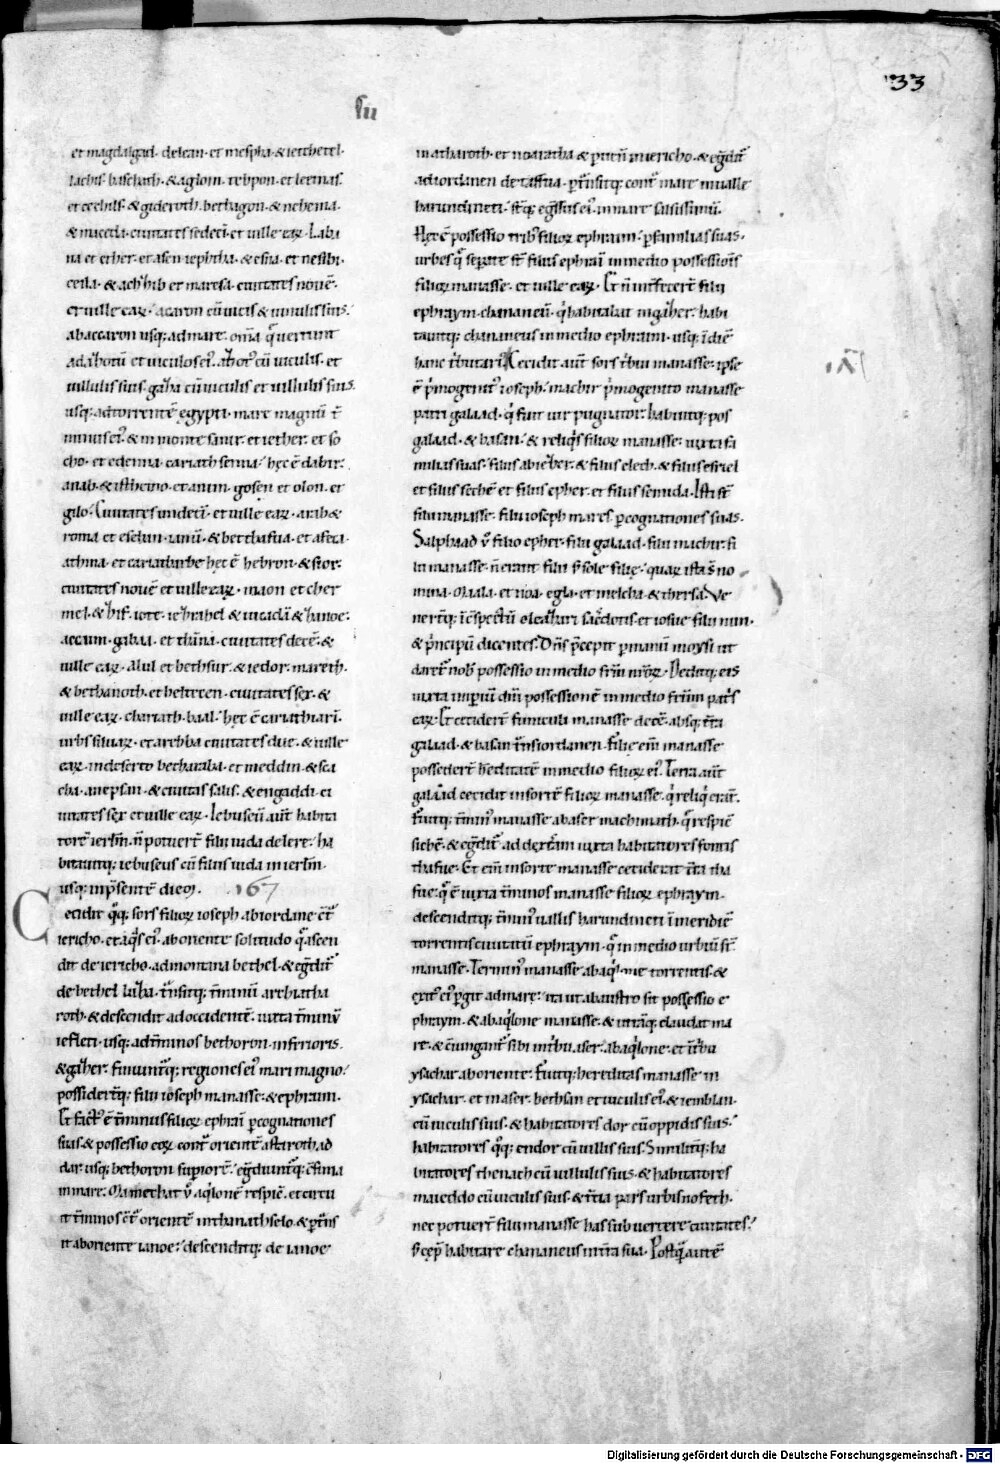 133
et magdalgad. delean. et mespha. & iecthetel.
lachis. baschath. & aglom. tebpon. et leemas.
et cechilis. & gideroth. bethagon. & nehema.
& maceda. ciuitates sedecī. et uille eaꝝ. Labi
na et ether. et asen iephtha. & esna. et nesibi.
ceila. & achzhib et maresa. ciuitates nouē.
et uille eaꝝ. acaron cū uicis & uinulis suis.
ab accaron usq; ad mare. om̄a q̄ uertunt
ad azhotū et uiculos eiꝰ. azhotꝰ cū uiculis. et
uillulis suis. gazha cū uiculis et uillulis suis.
usq; ad torrentē egypti. mare magnū t̄
minus eiꝰ. & in monte samir. et iether. et so
cho. et edenna. cariath senna. hęc ē dabir.
anab. & isthemo. et anim. gosen et olon. et
gilo. Ciuitates undecī. et uille eaꝝ. arab &
roma et esehan. ianū. & bethafua. et afeca
athma. et cariatharbe hęc ē hebron. & sior.
ciuitates nouē et uille eaꝝ. maon et cher
mel. & zhif. iote. iezhrahel & iucadā & zhanoe.
accaim. gabaa. et thāna. ciuitates decē. &
uille eaꝝ. alul et bethsur. & iedor. mareth.
& bethanoth. et heltecen. ciuitates sex. &
uille eaꝝ. chariath. baal. hęc ē cariathiarī.
urbs siluaꝝ. et arebba ciuitates due. & uille
eaꝝ. in deserto betharaba. et meddin. & sca
cha. anepsan. & ciuitas salis. & engaddi. ci
uitates sex et uille eaꝝ. Iebuseū aut̄ habita
torē ierłm. n̄ potuer̄t filii iuda delere. ha
bitauitq; iebuseus cū filiis iuda in ierłm.
usq; in p̄sentē diem. 167
Cecidit q̊q; sors filioꝝ ioseph ab iordane ct̄
iericho. et aq̄s eiꝰ. ab oriente solitudo q̄ ascen
dit de iericho. ad montana bethel. & egr̄dit̄
de bethel luzha. tr̄nsitq; t̄minū archiatha
roth. & descendit ad occidentē. iuxta t̄minū
iefleti. usq; ad t̄minos bethoron inferioris.
& gazher. finiunt̄q; regiones eiꝰ mari magno.
possider̄tq; filii ioseph manasse. & ephraim.
Et factꝰ ē t̄minus filioꝝ ephraī p cognationes
suas. & possessio eoꝝ cont̄ orientē astaroth ad
dar. usq; bethoron supiorē. egr̄diunt̄q; c̄finia
in mare. Machmethat ū aq̇lonē respic̄. et circu
it t̄minos ct̄ orientē in thanath selo. & pt̄ns
it ab oriente ianoe. descenditq; de ianoe
in atharoth. et noaratha & puen̄ in iericho. & egr̄dit̄
ad iordanen de taffua. pt̄nsitq; cont̄ mare in ualle
harundineti. st̄q; egr̄ssus eiꝰ. in mare salsissimū.
Hęc ē possessio tribꝰ filioꝝ ephraim. p familias suas.
urbesq; seperate st̄ filiis ephraī in medio possessiōis
filioꝝ manasse. et uille eaꝝ. Et n̄ int̄fecer̄t filii
ephraym. chananeū. q̇ habitabat in gazher. habi
tauitq; chananeus in medio ephraim. usq; ī diē
hanc t̄butariꝰ. Cecidit aut̄ sors t̄bui manasse. ipse
ē p̄mogenitꝰ ioseph. machir p̄mogenito manasse
patri galaad. q̇ fuit uir pugnator. habuitq; pos
galaad. & basan. & reliq̇s filioꝝ manasse. iuxta fa
milias suas. filiis abiezher. & filiis elech. & filiis esriel
et filiis sechē et filiis epher. et filiis semida. Isti st̄
filii manasse. filii ioseph mares p cognationes suas.
Salphaad ū filio epher. filii galaad. filii machir. fi
lii manasse. n̄ erant filii s; sole filię. quaꝝ ista s̄ no
mina. Maala. et noa. egla. et melcha. & thersa. Ve
ner̄tq; ī c̄spectū eleazhari sac̄dotis. et iosue filii nun.
& p̄ncipū dicentes. Dn̄s p̄cepit p manū moysi ut
daret̄ nob possessio in medio fr̄m nr̄oꝝ. Deditq; eis
iuxta impiū dn̄i possessionē in medio fr̄m pat̄s
eaꝝ. Et cecider̄t funiculi manasse decē. absq; t̄ra
galaad. & basan tr̄ns iordanen. Filię em̄ manasse
posseder̄t h̄editatē in medio filioꝝ eiꝰ. Terra aut̄
galaad cecidit in sortē filioꝝ manasse. q̇ reliq̇ erant.
Fuitq; t̄minꝰ manasse ab aser machmath. q̄ respic̄
sichē. & egr̄dit̄ ad dext̄am iuxta habitatores fontis
thafue. Et em̄ in sorte manasse ceciderat t̄ra tha
fue. q̄ ē iuxta t̄minos manasse filioꝝ ephraym.
descenditq; t̄minꝰ uallis harundineti ī meridiē
torrentis ciuitatū ephraym. q̄ in medio urbiū st̄
manasse. Terminꝰ manasse ab aq̇lone torrentis. &
exitꝰ eiꝰ pgit ad mare. ita ut ab austro sit possessio e
phraym. & ab aq̇lone manasse. & ut̄aq; claudat ma
re. & c̄iungant̄ sibi in t̄bu aser. ab aq̇lone. et ī t̄bu
ysachar ab oriente. Fuitq; hereditas manasse in
ysachar. et in aser. bethsan et uiculi eiꝰ. & iemblan.
cū uiculis suis. & habitatores dor cū oppidis suis.
habitatores q̊q; endor cū uillis suis. Similitq; ha
bitatores thenach cū uillulis suis. & habitatores
maieddo cū uiculis suis. & t̄tia pars urbis nofeth.
nec potuer̄t filii manasse has subuertere ciuitates.
s; cęp̄ habitare chananeus in t̄ra sua. Postq̄ autē
Digitalisierung gefördert durch die Deutsche Forschungsgemeinschaft - DFG